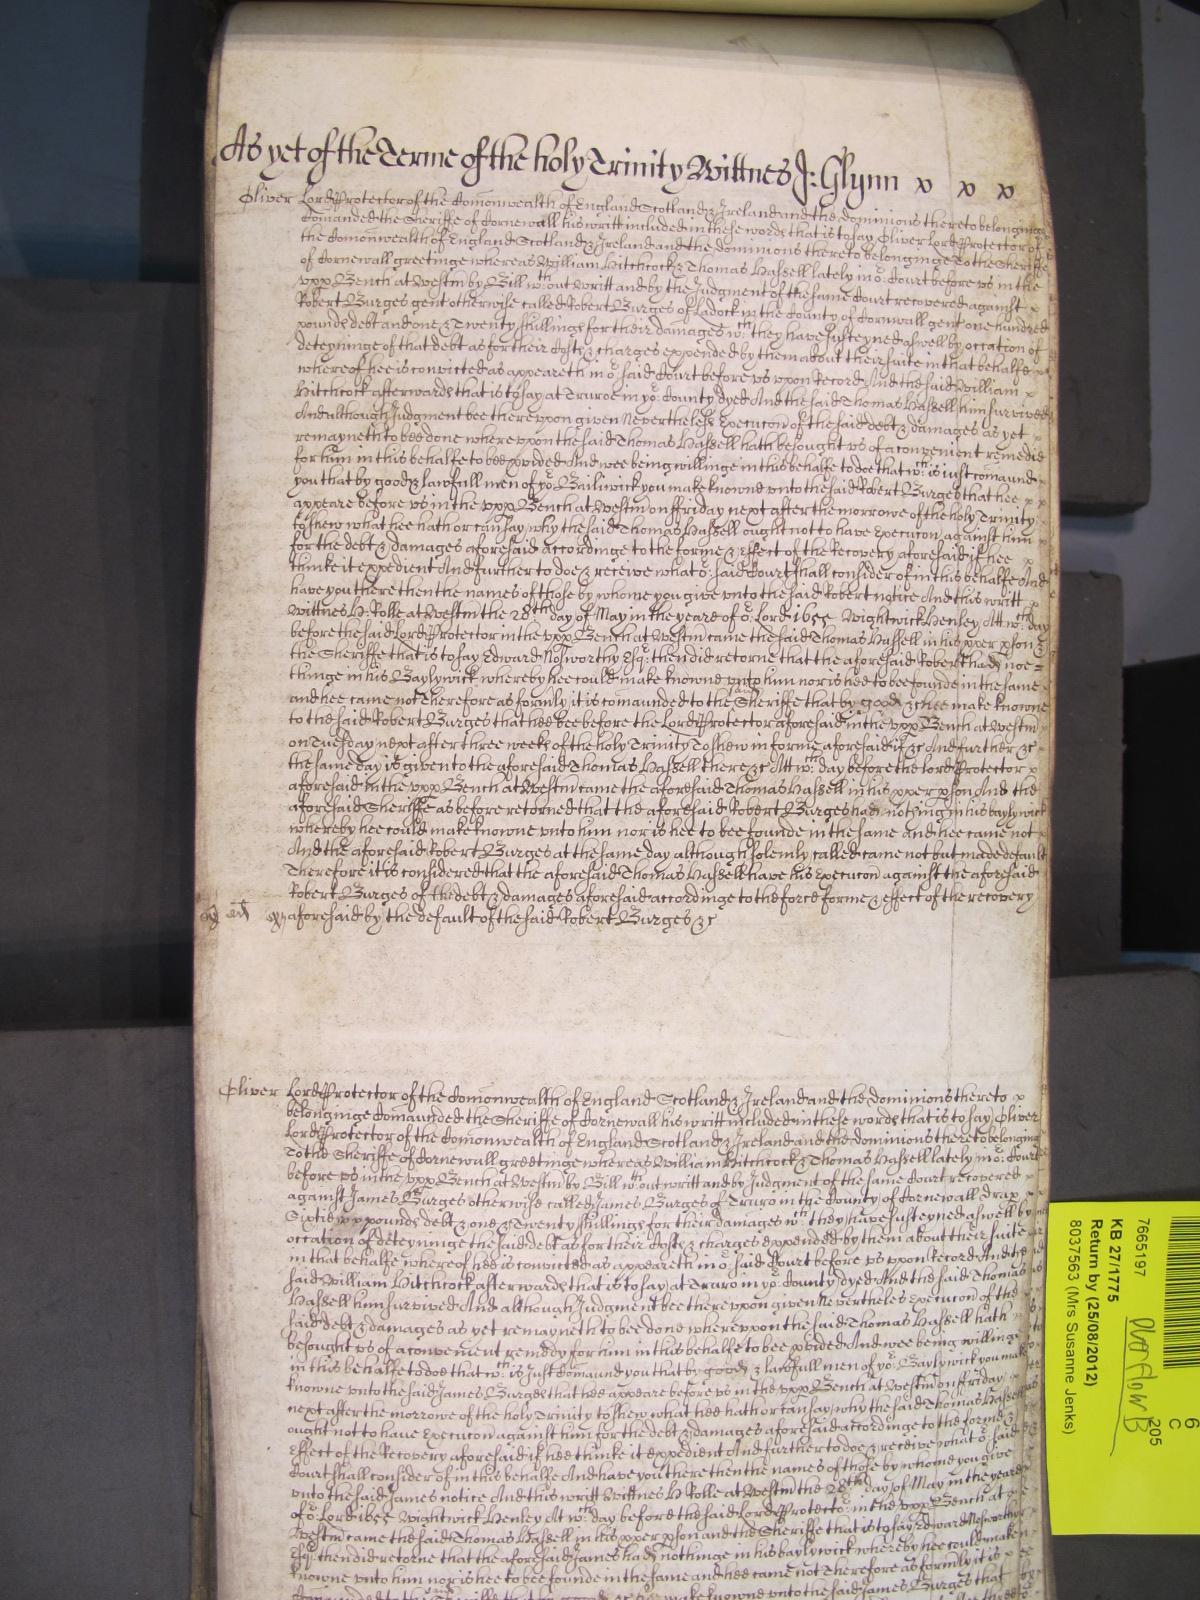 As yet of the Terme of the holy Trinity Wittnes J: Glynn x x x
Oliver Lord Protector of the Comonwealth of England Scotland & Ireland and the dominions thereto belonginge
Comanded the Sheriffe of Cornewall his writt included in these words that is to say Oliver Lord Protector of
the Comonwealth of England Scotland & Ireland and the dominions thereto belonginge To the Sheriffe
of Cornewall greetinge whereas William Hitchcock & Thomas Hassell lately in or Court before us in the
upp Bench at Westm by Bill wthout writt and by the Judgment of the same Court recovered against x
Robert Burges gent otherwise called Robert Burges of Ladock in the County of Cornwall gent one hundred
pounds debt and one & Twenty shillings for their damages wch they have susteyned aswell by occation of
deteyninge of that debt as for their Costs & charges expended by them about their suite in that behalfe
whereof hee is convicted as appeareth in or said Court before us uppon Record And the said William x
Hitchcock afterwards that is to say at Truroe in yor County dyed And the said Thomas Hassell him survived
And although Judgment bee thereuppon given Neverthelesse Execucon of the said debt & damages as yet
remayneth to bee done whereuppon the said Thomas Hassell hath besought us of a convenient remedie
for him in this behalfe to bee pvided And wee being willinge in this behalfe to doe that wch is iust comaund
you that by good & lawfull men of yor Bailiwick you make knowne unto the said Robert Burges that hee x
appeare before us in the upp Bench at Westm on ffriday next after the morrowe of the holy Trinity
To shew what hee hath or can say why the said Thomas Hassell ought not to have Execucon against him
for the debt & damages aforesaid accordinge to the forme & Effect of the Recovery aforesaid if hee
thinke it expedient And further to doe & receive what or said Court shall consider of in this behalfe And
have you there then the names of those by whome you give unto the said Robert notice And this writt
Wittnes H: Rolle at Westm the 28th day of May in the yeare of or Lord 1655 Wightwick Henley At wch day
before the said Lord Protector in the upp Bench at Westm came the said Thomas Hassell in his pper pson &
the Sheriffe that is to say Edward Nosworthy Esqr: then did retorne that the aforesaid Robert had noe=
thinge in his Baylywick whereby hee could make knowne unto him nor is hee to bee founde in the same
and hee came not Therefore as formly it is comaunded to the said Sheriffe that by good &c hee make knowne
to the said Robert Burges that hee bee before the Lord Protector aforesaid in the upp Bench at Westm
on Tuesday next after three weeks of the holy Trinity To shew in forme aforesaid if &c And further &c
the same day is given to the aforesaid Thomas Hassell there &c At wch day before the lord Protector x
aforesaid in the upp Bench at Westm came the aforesaid Thomas Hassell in his pper pson And the
aforesaid Sheriffe as before retorned that the aforesaid Robert Burges had nothing in his baylywick
whereby hee could make knowne unto him nor is hee to bee founde in the same and hee came not
And the aforesaid Robert Burges at the same day although solemly called came not but made default
Therefore it is considered that the aforesaid Thomas Hassell have his Execucon against the aforesaid
Robert Burges of the debt & damages aforesaid accordinge to the force forme & effect of the recovery
aforesaid by the default of the said Robert Burges &c
Oliver Lord Protector of the Comonwealth of England Scotland & Ireland and the dominions thereto x
belonginge Comaunded the Sheriffe of Cornewall his writt included in these words that is to say Oliver
Lord Protector of the Comonwealth of England Scotland & Ireland and the dominions thereto belonging
To the Sheriffe of Cornewall greetinge whereas William Hitchcock & Thomas Hassell lately in or: Court
before us in the upp Bench at Westm by Bill wthout writt and by Judgment of the same Court recovered
against James Burges otherwise called James Burges of Truro in the County of Cornewall drap
Sixtie pounds debt & one & Twenty shillings for their damages wch they have susteyned aswell by
occation of deteyninge the said debt as for their Costs & charges expended by them about their suite
in that behalfe whereof hee is convicted as appeareth in or said Court before us uppon Record And the
said William Hitchcock afterwards that is to say at Truro in yor County dyed And the said Thomas
Hassell him survived And although Judgment bee thereuppon given Neverthelesse Execucon of the
said debt & damages as yet remayneth to bee done whereuppon the said Thomas Hassell hath
besought us of a convenient remedy for him in this behalfe to bee pvided And wee being willinge
in this behalfe to doe that wch is Just Comaund you that by good & lawfull men of yor Baylywick you make
knowne unto the said James Burges that hee appeare before us in the upp Bench at Westm on ffriday
next after the morrowe of the holy Trinity to shew what hee hath or can say why the said Thomas Hassell
ought not to have Execucon against him for the debt & damages aforesaid accordinge to the forme &
Effect of the Recovery aforesaid if hee thinke it expedient And further to doe & receive what or said
Court shall consider of in this behalfe And have you there then the names of those by whome you give
unto the said James notice And this writt Wittnes H Rolle at Westm the 28th day of May in the yeare
of or Lord 1655 Wightwick Henley At wch day before the said Lord Protector in the upp Bench at
Westm came the said Thomas Hassell in his pper pson and the Sheriffe that is to say Edward Nosworthy
Esqr: then did retorne that the aforesaid James had nothinge in his baylywick whereby hee could make
knowne unto him nor is hee to bee founde in the same and hee came not Therefore as formly it is
make knowne unto the said James Burges that
7665197
KB 27/1775
Return by (25/08/2012)
8037563 (Mrs Susanne Jenks)
6
C
205